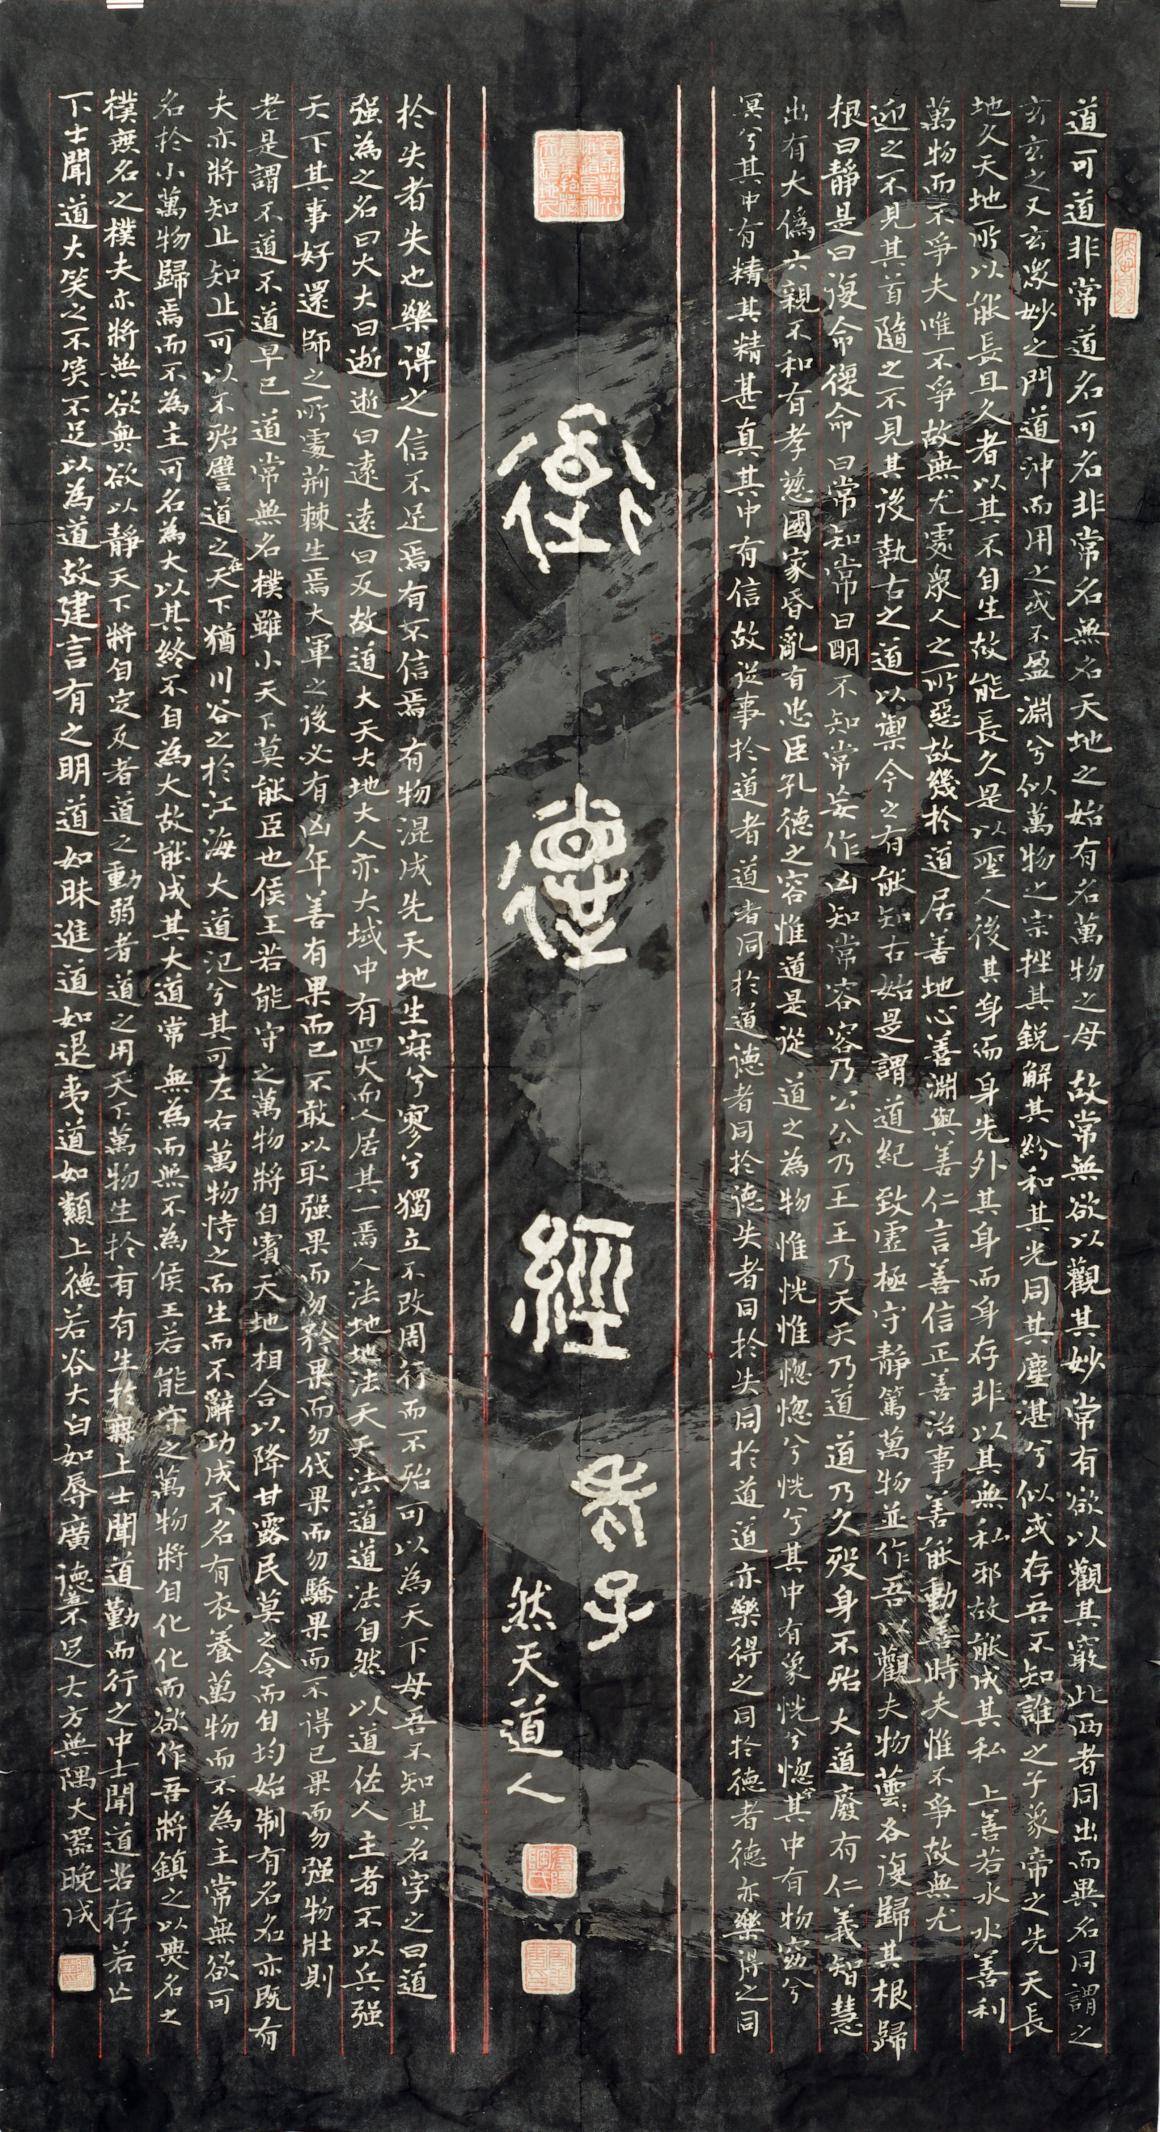 道可道非常道名可名非常名無名天地之始有名萬物之母 故常無欲以觀其妙常有欲以觀其竅此兩者同出而異名同謂之
玄玄之又玄眾妙之門道沖而用之或不盈淵兮似萬物之宗挫其銳解其紛和其光同其塵湛兮似或存吾不知誰之子象帝之先天長
地久天地所以能長且久者以其不自生故能長久是以聖人後其身而身先外其身而身存非以其無私邪故能成其私 上善若水水善利
萬物而不爭夫唯不爭故無尤處眾人之所惡故幾於道居善地心善淵與善仁言善信正善治事善能動善時夫惟不爭故無尤
迎之不見其首隨之不見其後執古之道以禦今之有能知古始是謂道紀 致虛極守靜篤萬物並作吾以觀夫物芸各復歸其根歸
根曰靜是曰復命復命曰常知常曰明不知常妄作凶知常容容乃公公乃王王乃天天乃道 道乃久歿身不殆 大道廢有仁義智慧
出有大偽六親不和有孝慈國家昏亂有忠臣孔德之容惟道是從 道之為物惟恍惟惚惚兮恍兮其中有象恍兮惚其中有物窈兮
冥兮其中有精其精甚真其中有信故從事於道者道者同於道德者同於德失者同於失同於道 道亦樂得之同於德者德亦樂得之同
道德經
老子
然天道人
於失者失也樂得之信不足焉有不信焉 有物混成先天地生寂兮寥兮獨立不改周行而不殆可以為天下母吾不知其名字之曰道
强為之名曰大大曰逝逝曰遠遠曰反故道大天大地大人亦大域中有四大而人居其一焉人法地地法天天法道道法自然 以道佐人主者不以兵强
天下其事好還師之所處荊棘生焉大軍之後必有凶年善有果而已不敢以取强果而勿矜果而勿伐果而勿驕果而不得已果而勿强物壯則
老是謂不道不道早已 道常無名樸雖小天下莫能臣也侯王若能守之萬物將自賓天地相合以降甘露民莫之令而自均始制有名名亦既有
夫亦將知止知止可以不殆譬道之在天下猶川谷之於江海大道氾兮其可左右萬物恃之而生而不辭功成不名有衣養萬物而不為主常無欲可
名於小萬物歸焉而不為主可名為大以其終不自為大故能成其大道常 無為而無不為侯王若能守之萬物將自化化而欲作吾將鎮之以無名之
樸無名之樸夫亦將無欲無欲以靜天下將自定反者道之動弱者道之用天下萬物生於有有生於無上士聞道勤而行之中士聞道若存若亡
下士聞道大笑之不笑不足以為道故建言有之明道如昧進道如退夷道如纇上德若谷大白如辱廣德若不足大方無隅大器晚成